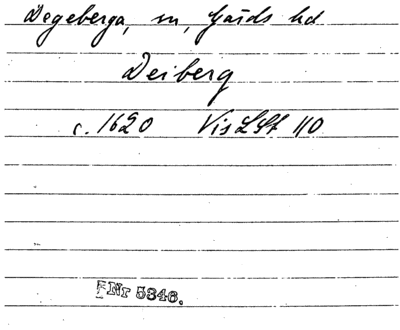 Degeberga, sn, Gärds hd
Deiberg
c. 1620 VisLSt 110
FNr 5346.